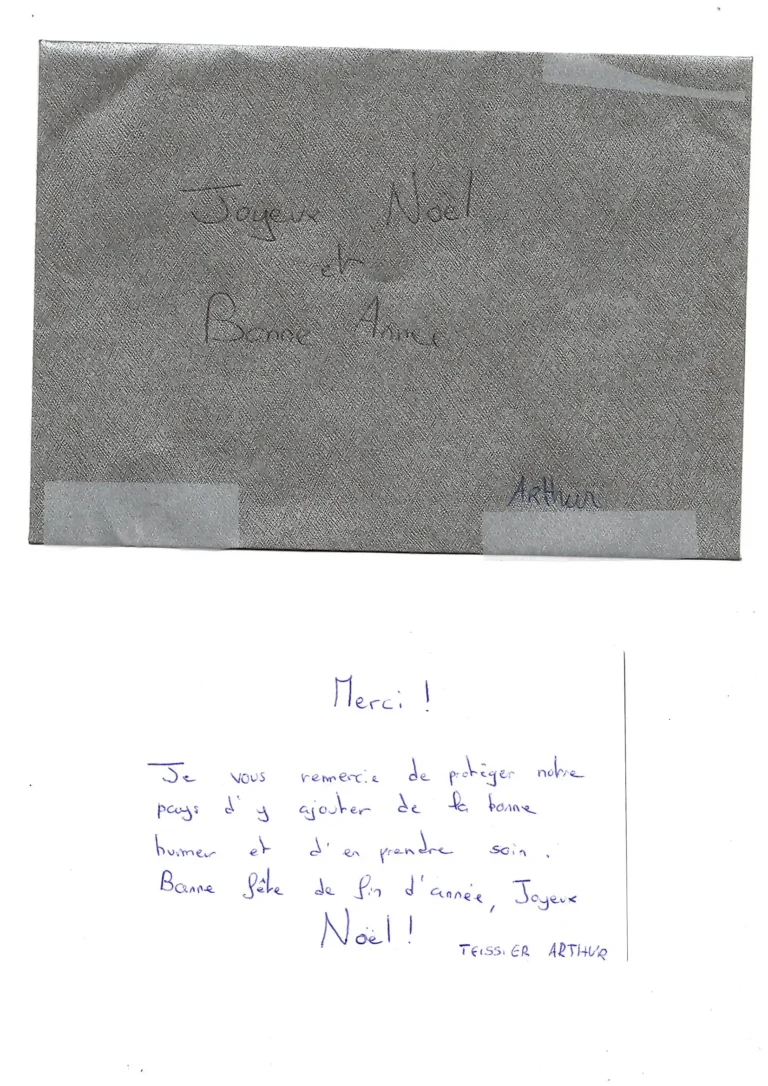 Joyeux Noël
et
Bonne Année
ARthur
Merci !
Je vous remercie de protéger notre
pays d'y ajouter de la bonne
humer et d'en prendre soin.
Bonne fête de fin d'année, Joyeux
Noël !
TEISSIER ARTHUR